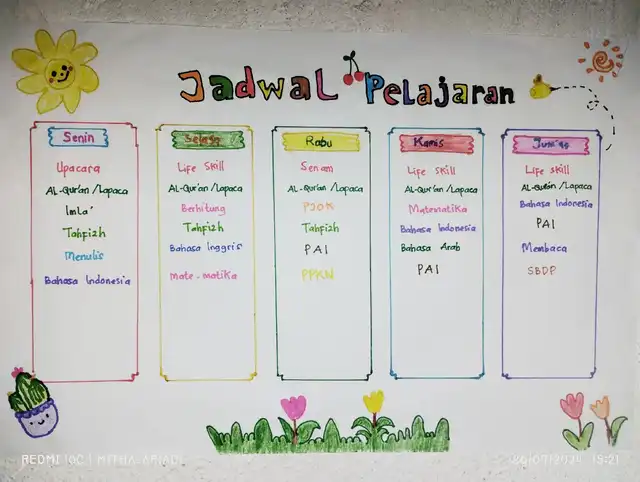 Jadwal Pelajaran
Senin
Upacara
AL-Qur'an /Lapaca
Imla'
Tahfizh
Menulis
Bahasa Indonesia
Selasa
Life Skill
AL-Qur'an /Lapaca
Berhitung
Tahfizh
Bahasa Inggris
Mate-matika
Rabu
Senam
AL-Qur'an /Lapaca
PJOK
Tahfizh
PAI
PPKN
Kamis
Life Skill
AL-Qur'an /Lapaca
Matematika
Bahasa Indonesia
Bahasa Arab
PAI
Jum'at
Life Skill
AL-Qur'an /Lapaca
Bahasa Indonesia
PAI
Membaca
SBDP
REDMI 10C |
19:21